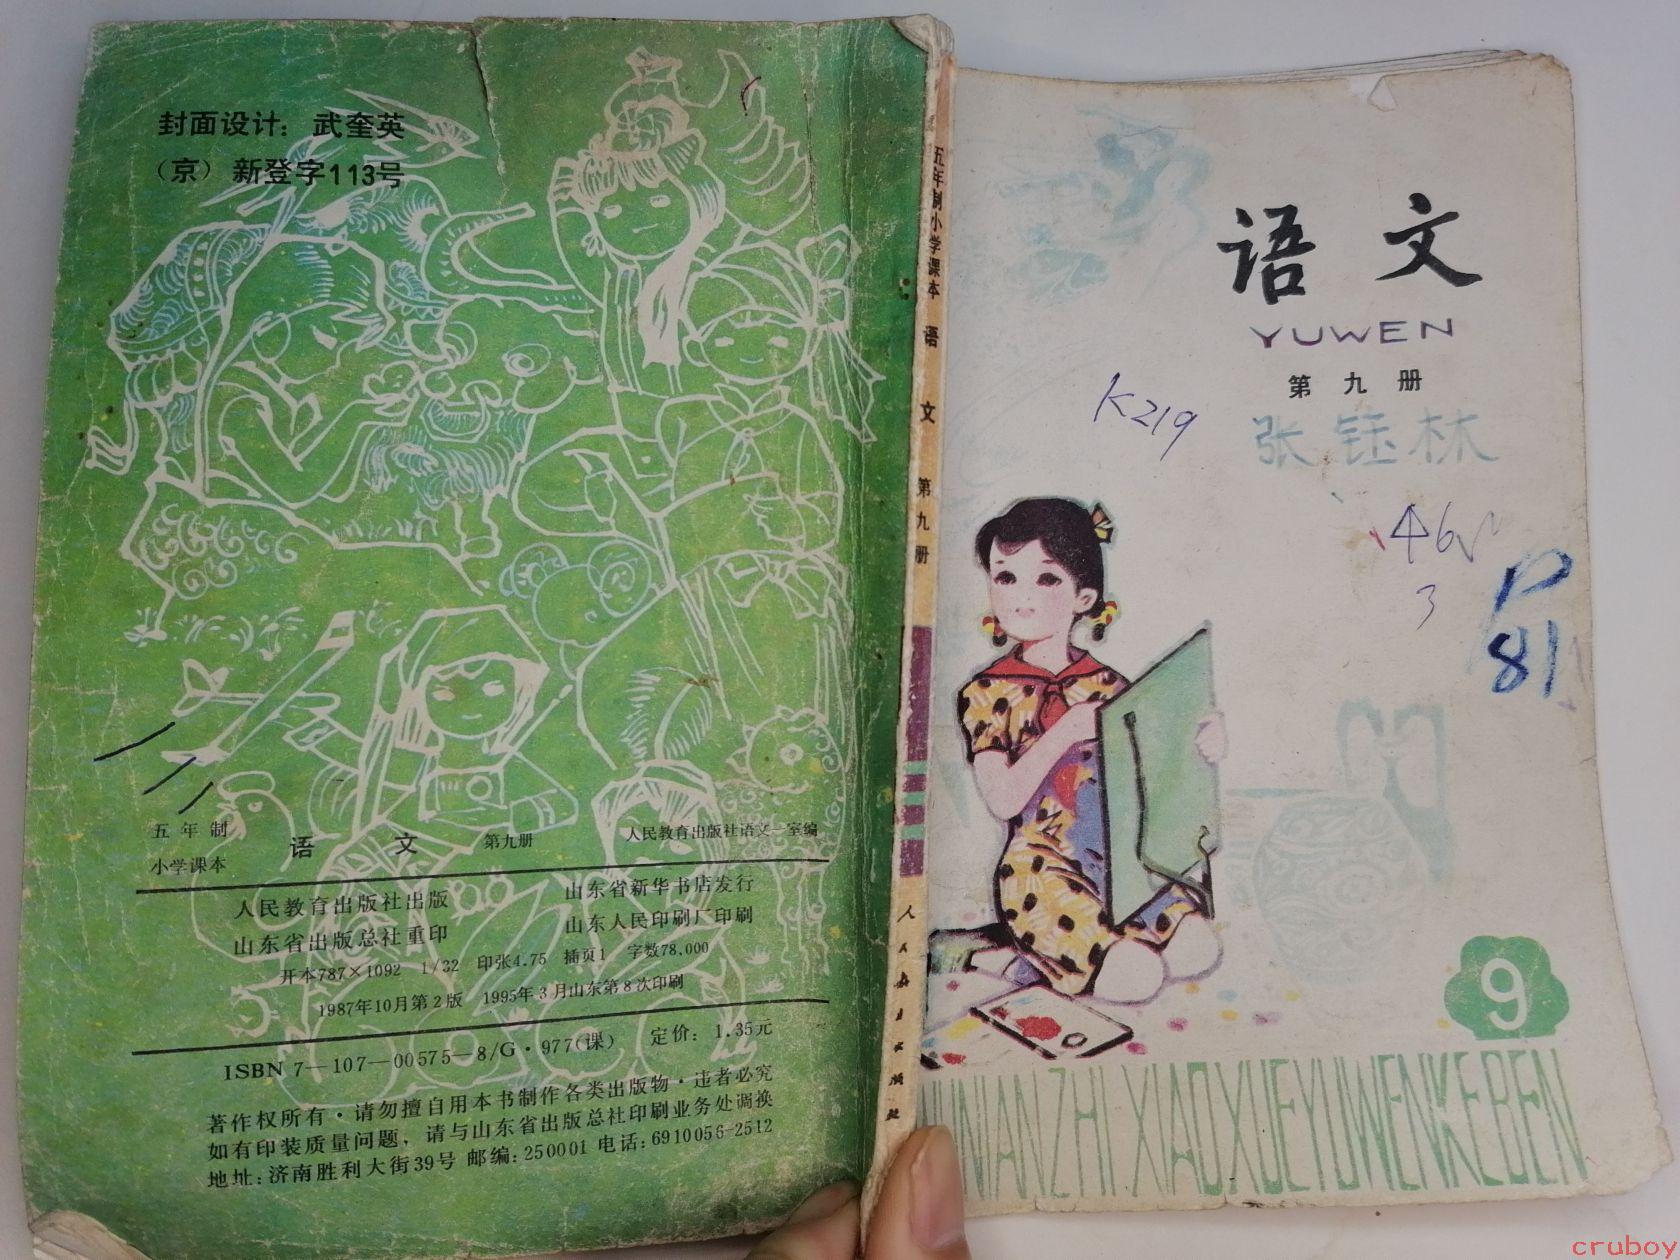 封面设计：武奎英
（京）新登字113号
五年制
小学课本
语文 第九册 人民教育出版社语文一室编
人民教育出版社出版
山东省出版总社重印
山东省新华书店发行
山东人民印刷厂印刷
开本787×1092 1/32 印张4.75 插页1 字数78,000
1987年10月第2版 1995年3月山东第8次印刷
ISBN 7—107—00575—8/G·977(课) 定价：1.35元
著作权所有·请勿擅自用本书制作各类出版物·违者必究
如有印装质量问题，请与山东省出版总社印刷业务处调换
地址：济南胜利大街39号 邮编：250001 电话：6910056-2512
五年制小学课本 语文 第九册 人民教育出版社
语文
YUWEN
第九册
K219
张钰林
46
3
P
81
9
NIANZHI XIAOXUEYUWENKEBEN
cruboy